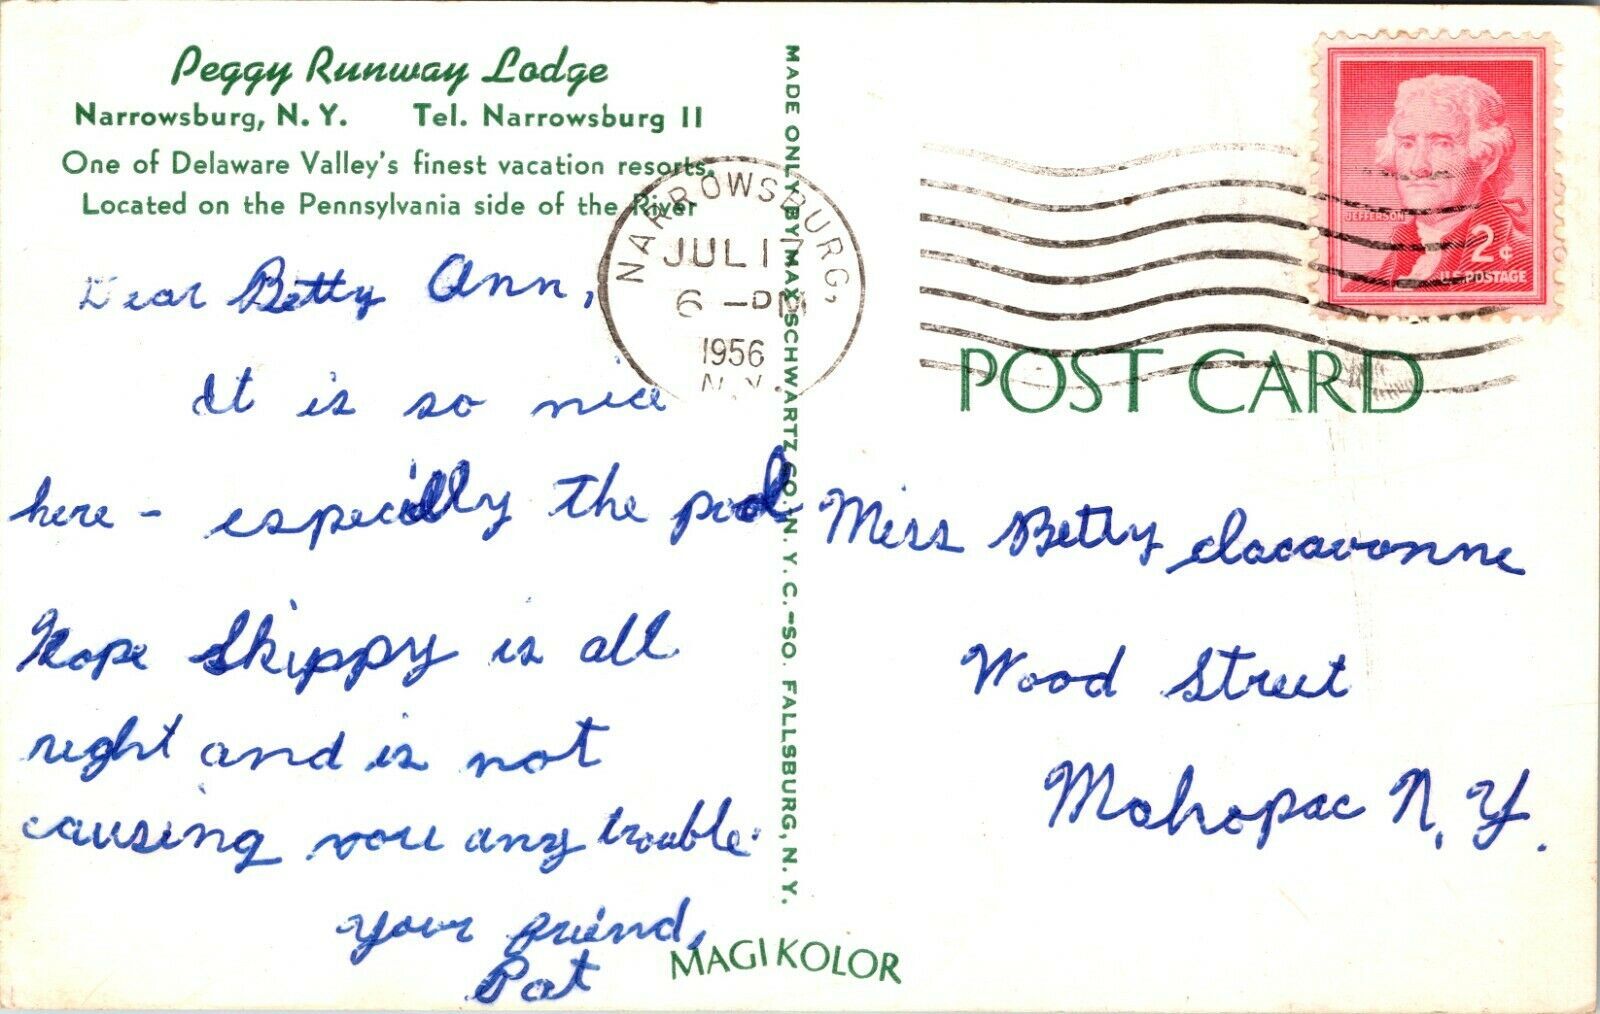 Peggy Runway Lodge
Narrowsburg, N. Y. Tel. Narrowsburg 11
One of Delaware Valley's finest vacation resorts.
Located on the Pennsylvania side of the River
Dear Betty Ann,
It is so nice
here - especially the pool
Hope Skippy is all
right and is not
causing you any trouble.
Your friend,
Pat
MADE ONLY BY MAX SCHWARTZ CO. N. Y. C. - SO. FALLSBURG, N. Y.
MAGIKOLOR
NARROWSBURG,
JUL 17
6 - PM
1956
N. Y.
JEFFERSON
2¢
U.S. POSTAGE
POST CARD
Miss Betty
Wood Street
Mahopac N. Y.